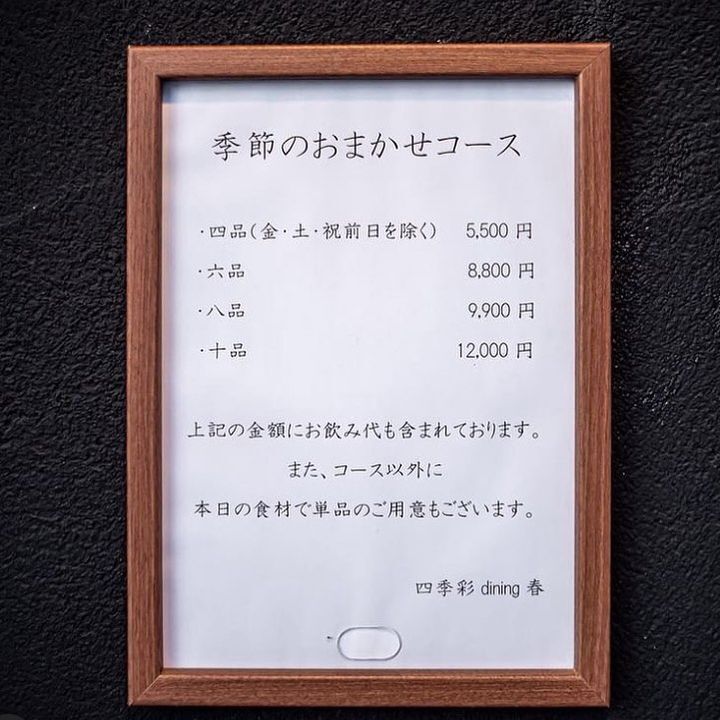 季節のおまかせコース
・四品(金・土・祝前日を除く) 5,500 円
・六品 8,800 円
・八品 9,900 円
・十品 12,000 円
上記の金額にお飲み代も含まれております。
また、コース以外に
本日の食材で単品のご用意もございます。
四季彩 dining 春